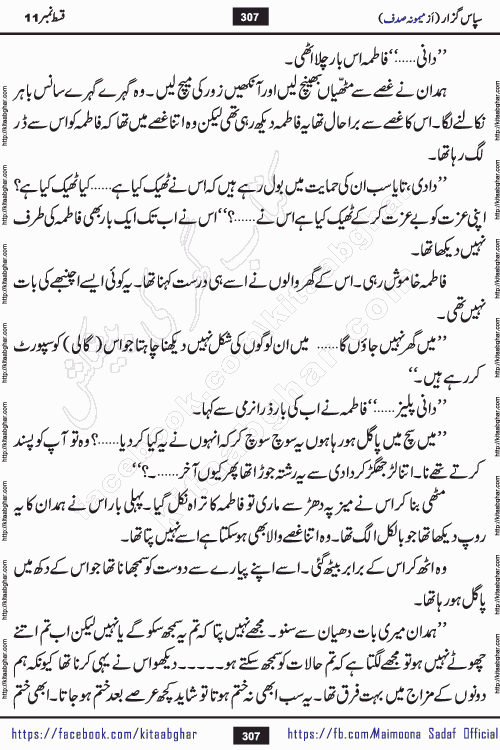 قسط نمبر 11
307
سپاس گزار (از میمونہ صدف)
’’دانی……‘‘ فاطمہ اس بار چلا اٹھی۔
ہمدان نے غصے سے مٹھیاں بھینچ لیں اور آنکھیں زور کی میچ لیں۔ وہ گہرے گہرے سانس باہر
نکالنے لگا۔ اس کا غصے سے برا حال تھا یہ فاطمہ دیکھ رہی تھی لیکن وہ اتنا غصے میں تھا کہ فاطمہ کو اس سے ڈر
لگ رہا تھا۔
’’دادی، تایا سب ان کی حمایت میں بول رہے ہیں کہ اس نے ٹھیک کیا ہے……کیا ٹھیک کیا ہے؟
اپنی عزت کو بے عزت کر کے ٹھیک کیا ہے اس نے……؟‘‘ اس نے اب تک ایک بار بھی فاطمہ کی طرف
نہیں دیکھا تھا۔
فاطمہ خاموش رہی۔ اس کے گھر والوں نے اسے ہی درست کہنا تھا۔ یہ کوئی ایسے اچنبھے کی بات
نہیں تھی۔
’’میں گھر نہیں جاؤں گا…… میں ان لوگوں کی شکل نہیں دیکھنا چاہتا جو اس (گالی) کو سپورٹ
کر رہے ہیں۔‘‘
’’دانی پلیز……‘‘ فاطمہ نے اب کی بار ذرا نرمی سے کہا۔
’’میں سچ میں پاگل ہو رہا ہوں یہ سوچ سوچ کر کہ انہوں نے یہ کیا کر دیا……؟ وہ تو آپ کو پسند
کرتے تھے نا۔ اتنا لڑ جھگڑ کر دادی سے یہ رشتہ جوڑا تھا پھر کیوں آخر……۔؟‘‘
مٹھی بنا کر اس نے میز پہ دھڑ سے ماری تو فاطمہ کا تراہ نکل گیا۔ پہلی بار اس نے ہمدان کا یہ
روپ دیکھا تھا جو بالکل الگ تھا۔ وہ اتنا غصے والا بھی ہو سکتا ہے اسے نہیں پتا تھا۔
وہ اٹھ کر اس کے برابر بیٹھ گئی۔ اسے اپنے پیارے سے دوست کو سمجھانا تھا جو اس کے دکھ میں
پاگل ہو رہا تھا۔
’’ہمدان میری بات دھیان سے سنو۔ مجھے نہیں پتا کہ تم یہ سمجھ سکو گے یا نہیں لیکن اب تم اتنے
چھوٹے نہیں ہو تو مجھے لگتا ہے کہ تم حالات کو سمجھ سکتے ہو۔۔۔۔۔دیکھو اس نے یہی کرنا تھا کیونکہ ہم
دونوں کے مزاج میں بہت فرق تھا۔ یہ سب ابھی نہ ختم ہوتا تو شاید کچھ عرصے بعد ختم ہو جاتا۔ ابھی ختم
https://facebook.com/kitaabghar
307
https://fb.com/Maimoona Sadaf Official
http://kitaabghar.com